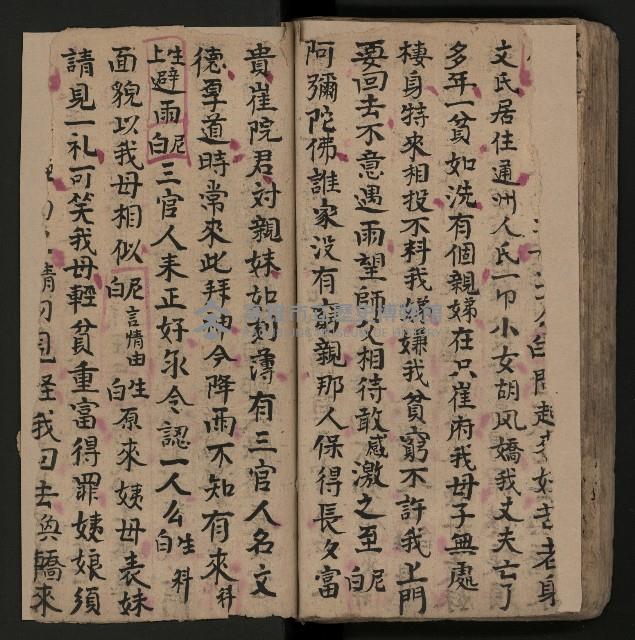 老身
文氏居住通州人氏一卩小女胡凤嬌我丈夫亡了
多年一貧如洗有個親娣在只崔府我母子無處
棲身特來相投不料我嫌我貧窮不許我上門
要回去不意遇雨望師父相待敢感激之至尼白
阿彌陀佛誰家没有窮親那人保得長久富
貴崔院君対親妹如刻薄有三官人名文
德尊道時常來此拜今降雨不知有來科
上生避雨尼白三官人来正好永令認一人么生白科
面貌以我母相似尼白言情由生白原來姨母表妹
請見一礼可笑我母輕貧重富得罪姨娘須
怪我回去與轎來